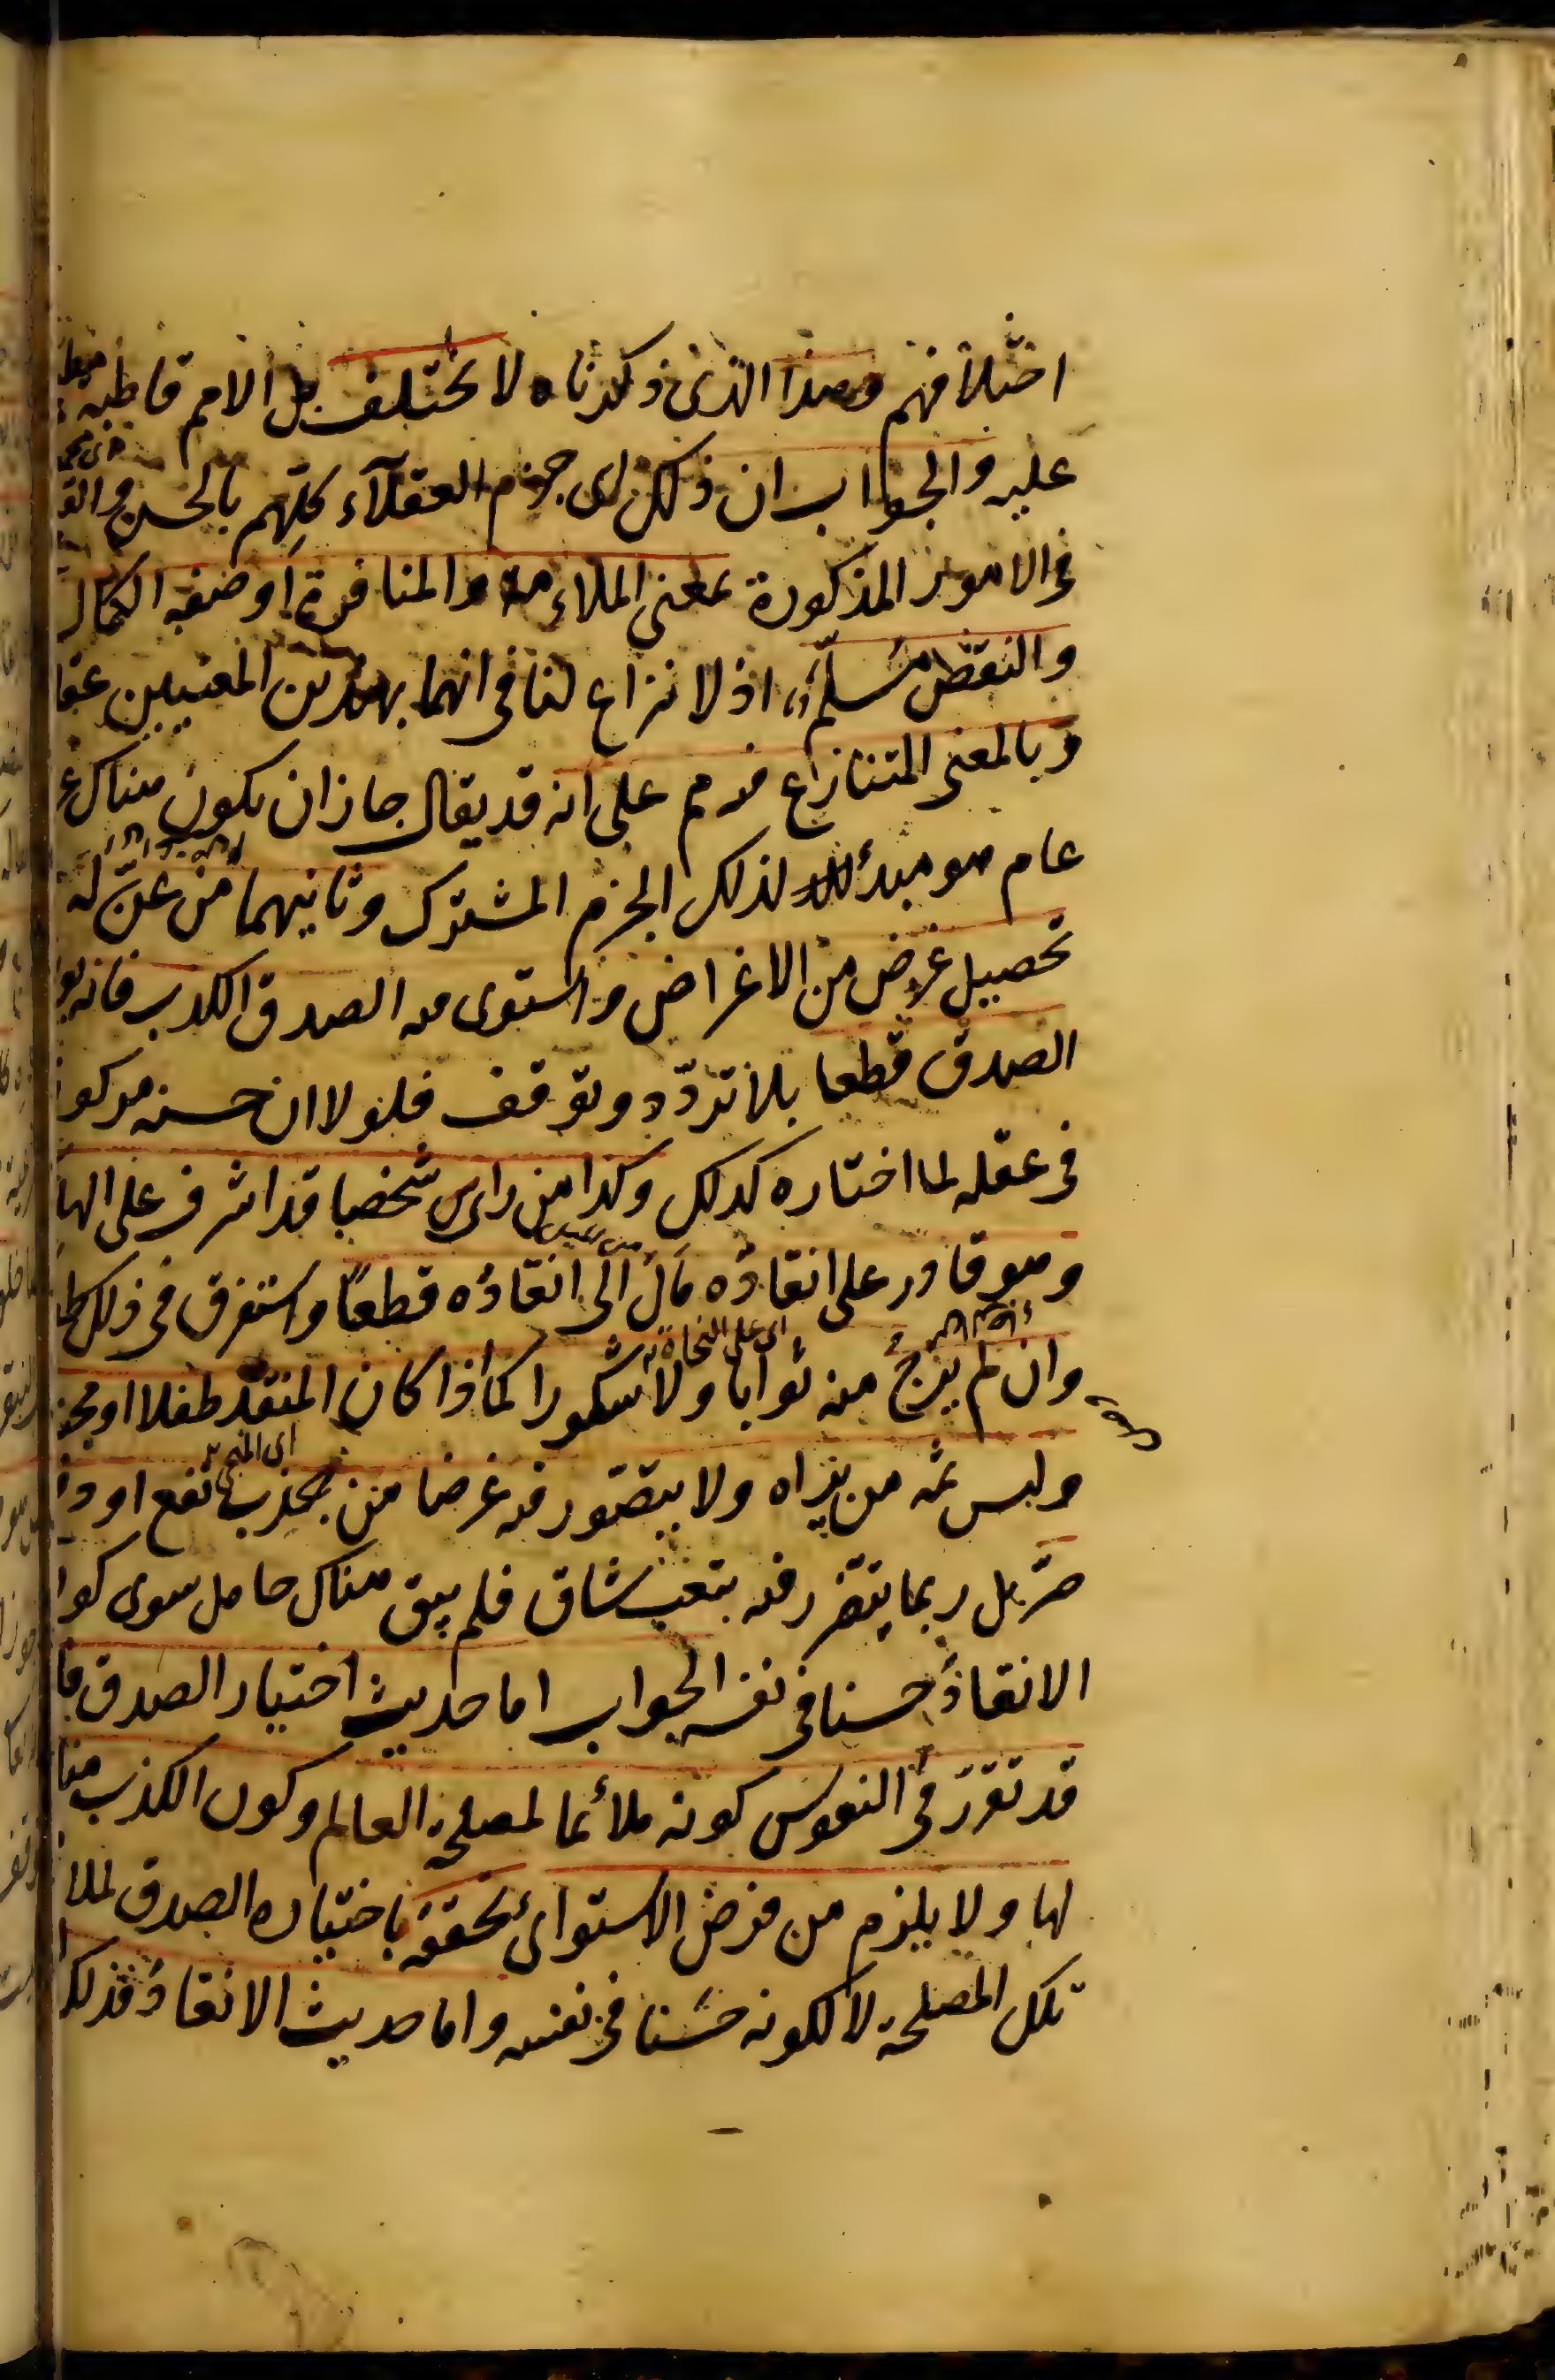 اختلافهم وهذا الذى ذكرناه لا يختلف بل الامم قاطبة
عليه والجواب ان ذلك اى جزم العقلآء كلّهم بالحسن والق
فى الامور المذكورة بمعنى الملاءمة والمنافرة او صفة الكمال
والنقص مسلّم اذ لا نزاع لنا فى انهما بهذين المعنيين عقل
وبالمعنى المتنازع فيه مم على انه قد يقال جاز ان يكون هناك ع
عام هو مبدأ لذلك الجزم المشترك وثانيهما من عنّ له
تحصيل غرض من الاغراض واستوى فيه الصدق الكذب فانه يو
الصدق قطعا بلا تردّد وتوقف فلولا ان حسنه مركو
فى عقله لما اختاره كذلك وكذا من راى شخصا قد اشرف على الها
وهو قادر على انقاذه مال الى انقاذه قطعًا واستغرق فى ذلك ط
وان لم يرج منه ثوابا ولا شكورا كما اذا كان المنقذ طفلا او مج
اى على النجاة
وليس ثمه من يراه ولا يتصور فيه غرضا من جذب نفع او د
ضرّ بل ربما يتضرر فيه بتعب شاق فلم يبق هناك حامل سوى كو
الانقاذ حسنا فى نفسه الجواب اما حديث اختيار الصدق فا
قد تقرّر فى النفوس كونه ملائما لمصلحة العالم وكون الكذب منا
لها ولا يلزم من فرض الاستواء تحققه باختياره الصدق لملا
تلك المصلحة لا لكونه حسنا فى نفسه واما حديث الانقاذ فذلك